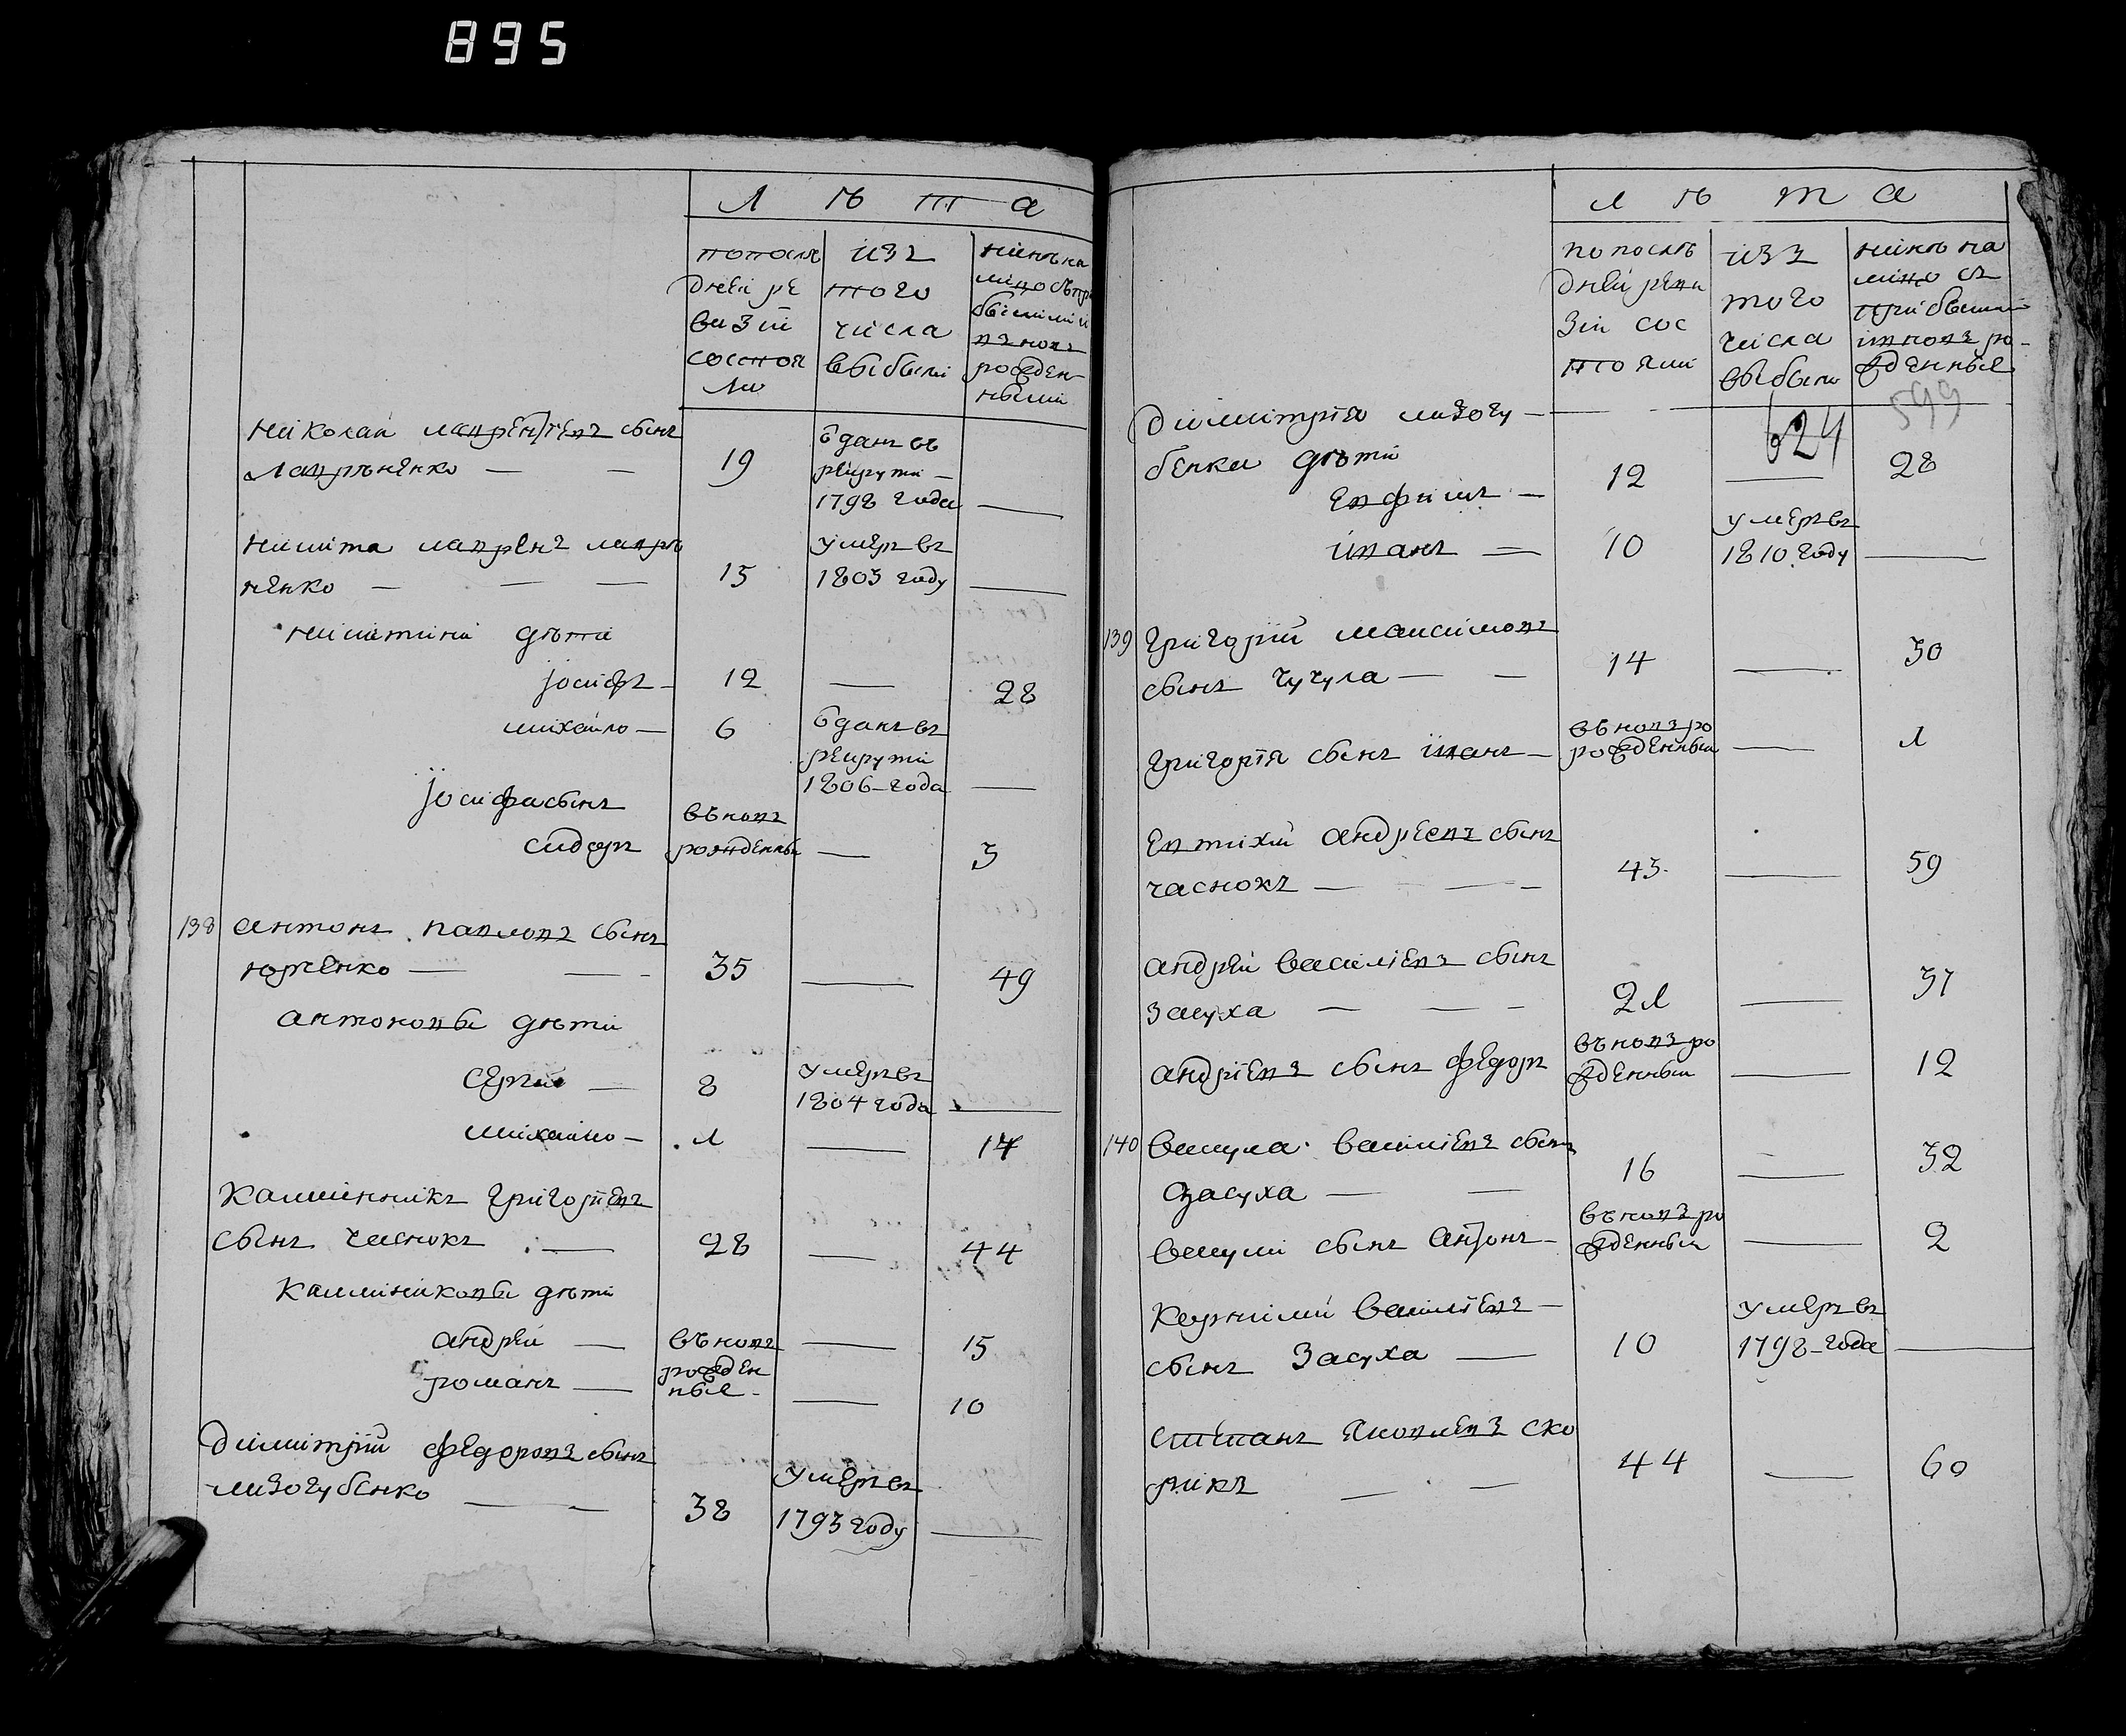 895
Л ѣ т а
по послѣ
дней ре
визiи
состоя
ли
изъ
того
числа
выбыли
ninѣ на
лицо съ при
былыми и
вновь
рожден
ными
Николай Лаврентьевъ сынъ
Лавръненко — — 19
отданъ въ
рекрути —
1798 года —
Никита Лавренъ Лавръ
ненко — — — 15
умеръ въ
1803 году —
Никитини дѣти
Іосифъ — 12 — 28
Михайло — 6
отданъ въ
рекрути
1806 года —
Іосифа сынъ
Сидоръ
въ новъ
рожденны — 3
138 Антонъ Павловъ сынъ
Юрченко — — 35 — 49
Антоновы дѣти
Сергій — 8
умеръ въ
1804 года —
Михайло — л — 17
Каллинникъ Григорiевъ
сынъ Часнокъ — 28 — 44
Каллиниковы дѣти
Андрей — въ новъ — 15
Романъ — рожден
ныя — — 10
Димитрій Федоровъ сынъ
Лизогубенко — — 38
умеръ въ
1793 году —
Л ѣ т а
по послѣ
дней реви
зіи сос
тояли
изъ
того
числа
выбыли
нинѣ на
лицо съ
прибылыми
и вновъ ро
жденныя
599
624
Димитрія Лизогу —
бенка дѣти
Евфимъ — 12 — 28
Иванъ — 10
умеръ въ
1810 году —
139 Григорій Максимовъ
сынъ Чучула — — 14 — 30
Григорія сынъ Иванъ —
въ новъ ро
рожденный — л
Евтихій Андреевъ сынъ
Часнокъ — — — 43 — 59
Андрей Василіевъ сынъ
Засуха — — — 2л — 37
Андріевъ сынъ Федоръ
въ новъ ро
жденный — 12
140 Вакула Василіевъ сынъ
Засуха — — 16 — 32
Вакули сынъ Антонъ —
въ новъ ро
жденный — 2
Корнилій Василіевъ —
сынъ Засуха — 10
умеръ въ
1798 года —
Степанъ Яковлевъ Ско
рикъ — — 44 — 60